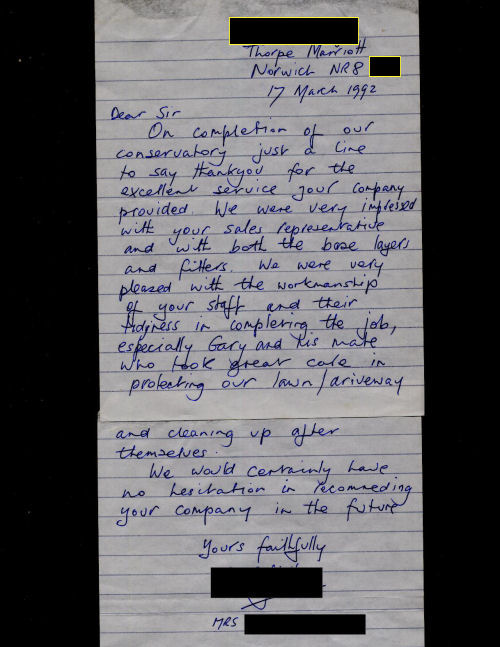 Thorpe Marriott
Norwich NR8
17 March 1992
Dear Sir
On completion of our
conservatory just a line
to say thankyou for the
excellent service your company
provided. We were very impressed
with your sales representative
and with both the base layers
and fitters. We were very
pleased with the workmanship
of your staff and their
tidyness in completing the job,
especially Gary and his mate
who took great care in
protecting our lawn/driveway
and cleaning up after
themselves.
We would certainly have
no hesitation in recommeding
your company in the future
Yours faithfully
MRS